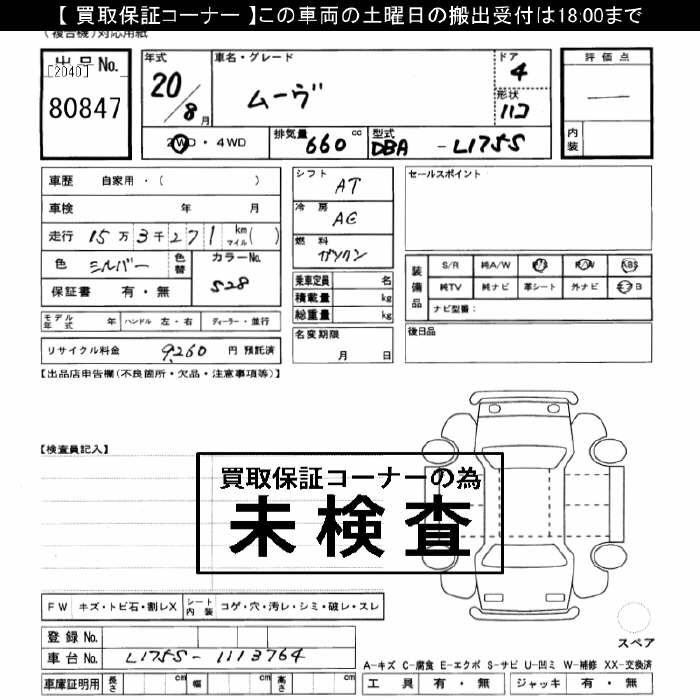 【 買取保証コーナー 】この車両の土曜日の搬出受付は18:00まで
(複合機)対応用紙
出品No.
[2040]
80847
年式
20/8月
車名・グレード
ムーヴ
ドア
4
形状
ハコ
2WD・4WD
排気量 660 cc
型式 DBA - L175S
評価点
―
内装
車歴 自家用・( )
車検 年 月
走行 15万3千271 km マイル( )
色 シルバー
色替
カラーNo.
S28
保証書 有・無
シフト
AT
冷房
AC
燃料
ガソリン
乗車定員 名
積載量 kg
総重量 kg
セールスポイント
装備品
S/R 純A/W P/S P/W ABS
純TV 純ナビ 革シート 外ナビ エアB
ナビ型番:
モデル年式 年 ハンドル 左・右 ディーラー・並行
名変期限
月 日
後日品
リサイクル料金 9,260 円 預託済
【出品店申告欄(不良箇所・欠品・注意事項等)】
【検査員記入】
買取保証コーナーの為
未検査
FW キズ・トビ石・割レX シート内装 コゲ・穴・汚レ・シミ・破レ・スレ
登録No.
車台No. L175S-1113764
車庫証明用 長さ cm 幅 cm 高さ cm
スペア
A-キズ C-腐食 E-エクボ S-サビ U-凹ミ W-補修 XX-交換済
工具 有・無 ジャッキ 有・無